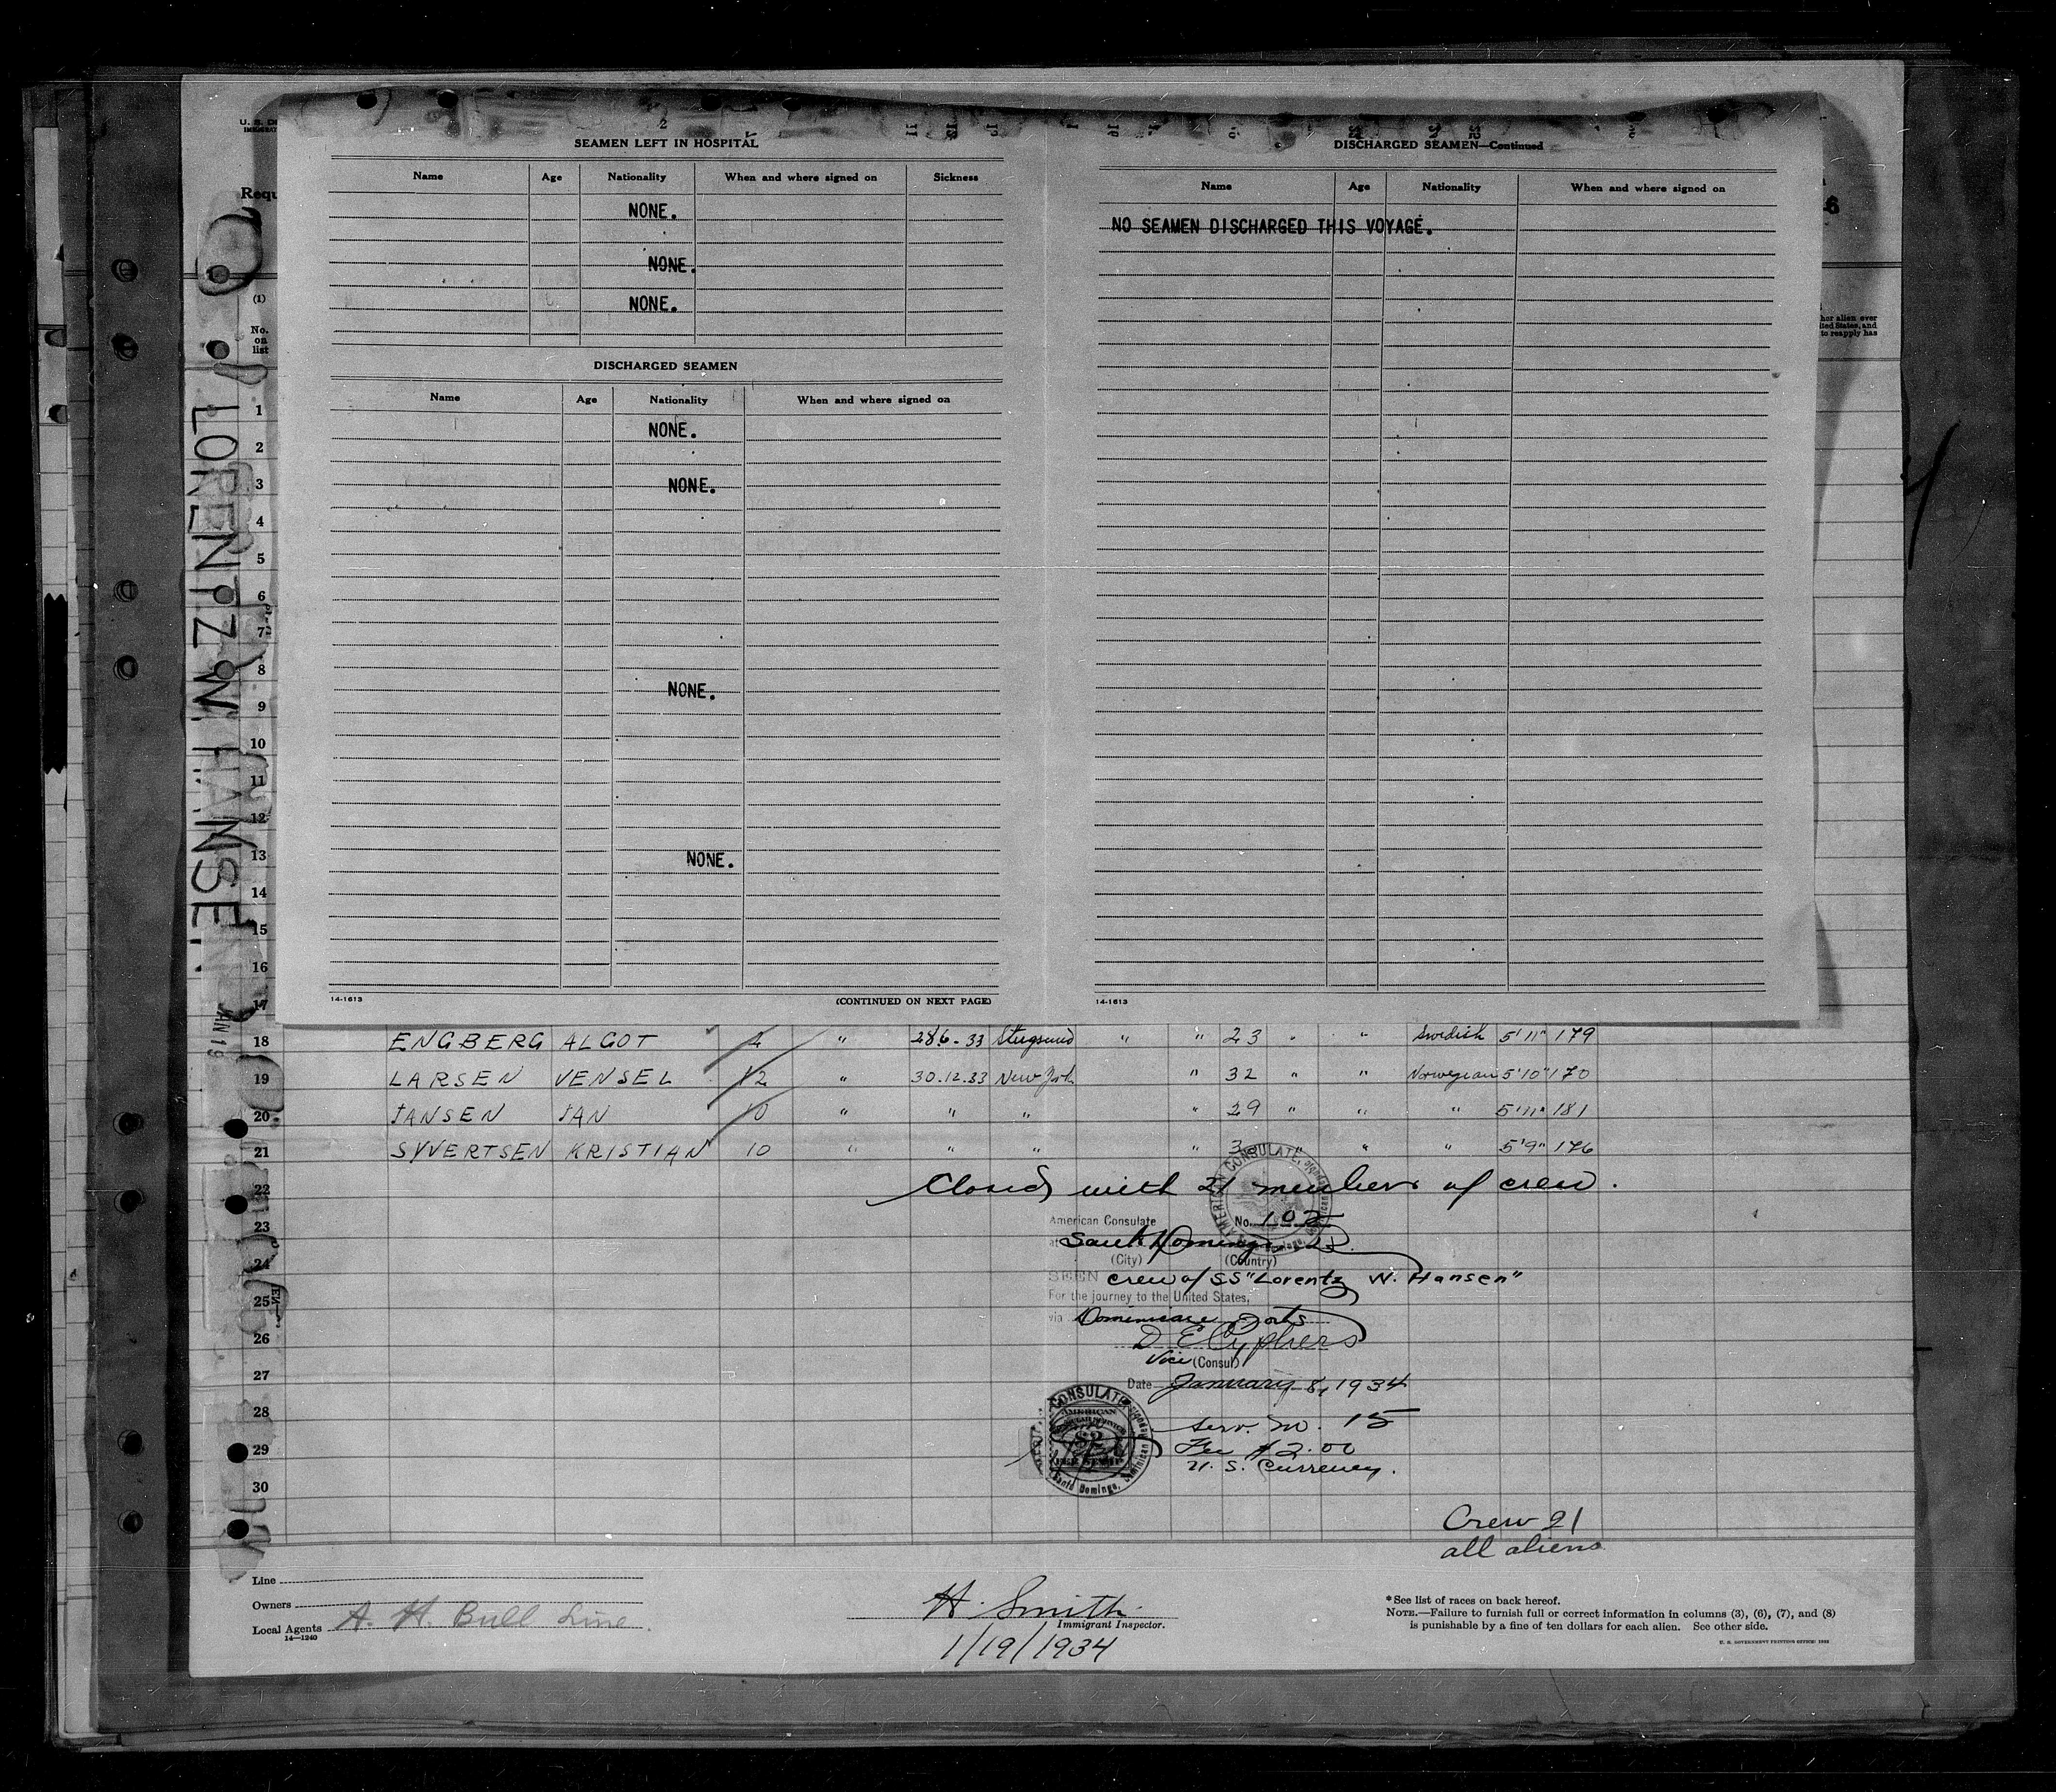 2
SEAMEN LEFT IN HOSPITAL
Name Age Nationality When and where signed on Sickness
NONE.
NONE.
NONE.
DISCHARGED SEAMEN
Name Age Nationality When and where signed on
NONE.
NONE.
NONE.
NONE.
14-1613 (CONTINUED ON NEXT PAGE)
DISCHARGED SEAMEN—Continued
Name Age Nationality When and where signed on
NO SEAMEN DISCHARGED THIS VOYAGE.
14-1613
(1)
No.
on
list
1
2
3
4
5
6
7
8
9
10
11
12
13
14
15
16
17
LORENTZ W. HANSEN
18 ENGBERG ALGOT 2 " 28.6-33 " " 23 " " Swedish 5'11" 179
19 LARSEN VENSEL 12 " 30.12.33 New York " 32 " " Norwegian 5'10" 170
20 JANSEN JAN 10 " " " " 29 " " " 5'11" 181
21 SYVERTSEN KRISTIAN 10 " " " " " " " 5'9" 176
22 Closed with 21 members of crew.
23
24
25
26
27
28
29
30
AMERICAN CONSULATE
American Consulate No. 102
at Santo Domingo D.R.
(City) (Country)
SEEN crew of SS "Lorentz W. Hansen"
For the journey to the United States,
via Dominican Ports
D E Cyphers
Vice (Consul)
Date January 8, 1934
Serv. No. 15
Fee $2.00
U. S. Currency.
CONSULATE
AMERICAN
$2
Santo Domingo, Dominican Republic
Crew 21
all aliens
Line
Owners
Local Agents A. H. Bull Line.
14—1240
H. Smith
Immigrant Inspector.
1/19/1934
*See list of races on back hereof.
NOTE.—Failure to furnish full or correct information in columns (3), (6), (7), and (8)
is punishable by a fine of ten dollars for each alien. See other side.
U. S. GOVERNMENT PRINTING OFFICE